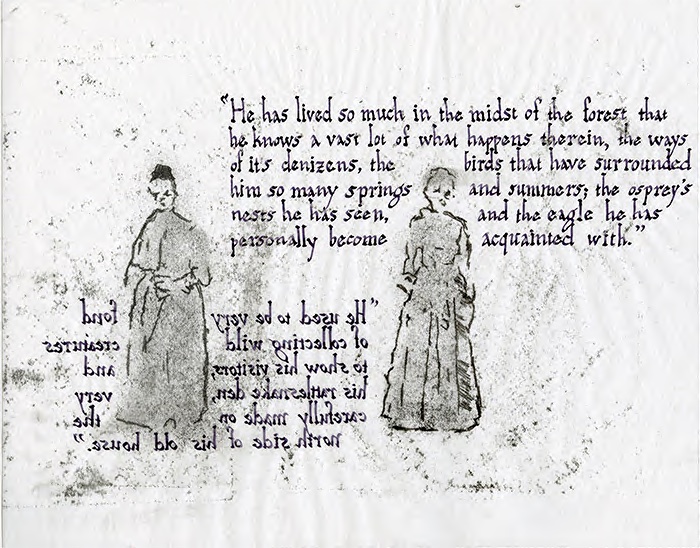 "He has lived so much in the midst of the forest that
he knows a vast lot of what happens therein, the ways
of it's denizens, the birds that have surrounded
him so many springs and summers; the osprey's
nests he has seen, and the eagle he has
personally become acquainted with."
"He used to be very fond
of collecting wild creatures
to show his visitors, and
his rattlesnake den, very
carefully made on the
north side of his old house."